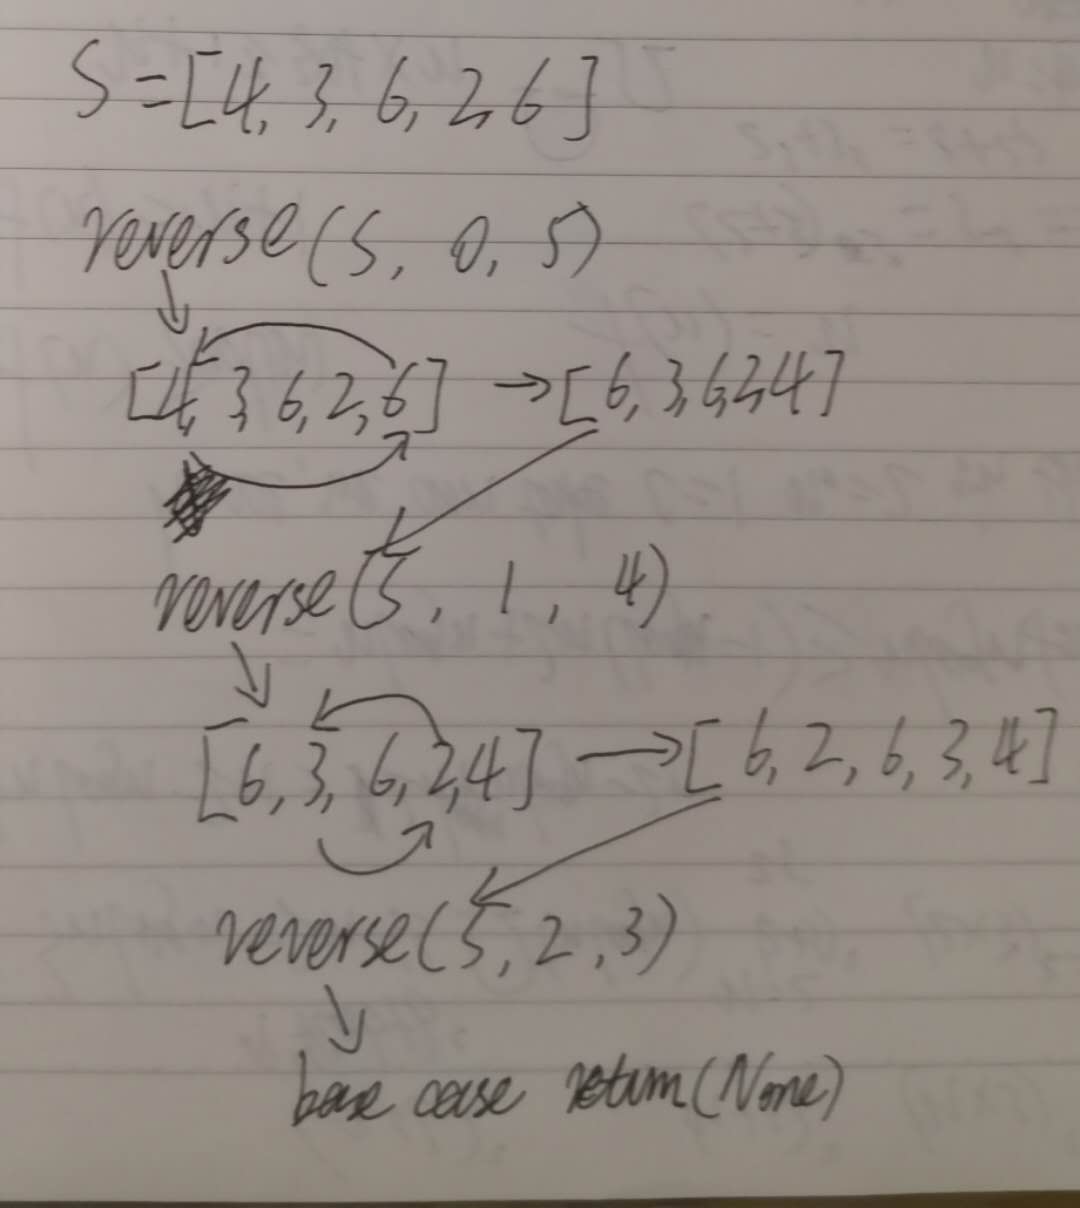 S = [4, 3, 6, 2, 6]
reverse(S, 0, 5)
[4, 3, 6, 2, 6] → [6, 3, 6, 2, 4]
reverse(S, 1, 4)
[6, 3, 6, 2, 4] → [6, 2, 6, 3, 4]
reverse(S, 2, 3)
base case return(None)